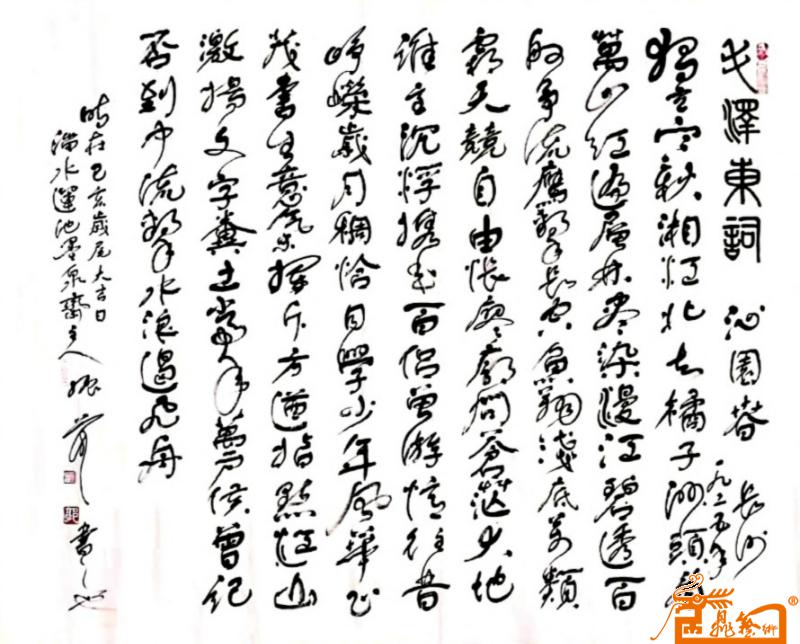 毛澤東詞 沁園春 長沙
一九二五年
獨立寒秋湘江北去橘子洲頭看
萬山紅遍層林盡染漫江碧透百
舸爭流鷹擊長空魚翔淺底万類
霜天競自由悵寥廓問蒼茫大地
誰主沉浮攜來百侶曾游憶往昔
崢嶸歲月稠恰同學少年風華正
茂書生意氣揮斥方遒指點江山
激揚文字糞土當年萬戶侯曾記
否到中流擊水浪遏飛舟
時在己亥歲尾大吉日
水蓮池墨泉齋主人振 書